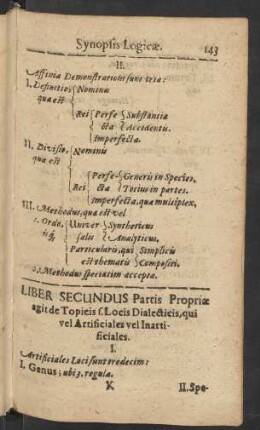 Synopsis Logicæ. 143
II.
Affinia Demonstrationi sunt tria:
I. Definitio, Nominis
quæ est
Rei Perfe- Substantiæ
cta Accidentis.
Imperfecta.
II. Divisio, Nominis
quæ est
Perfe- Generis in Species.
Rei cta Totius in partes.
Imperfecta, quæ multiplex.
III. Methodus, quæ est vel
1. Ordo, Univer- Syntheticus
isq; salis Analyticus.
Particularis, qui Simplicis
est thematis Compositi.
2. Methodus speciatim accepta.
LIBER SECUNDUS Partis Propriæ
agit de Topicis f. Locis Dialecticis, qui
vel Artificiales vel Inarti-
ficiales.
I.
Artificiales Loci sunt tredecim:
I. Genus; ubi 3. regulæ.
K II. Spe-